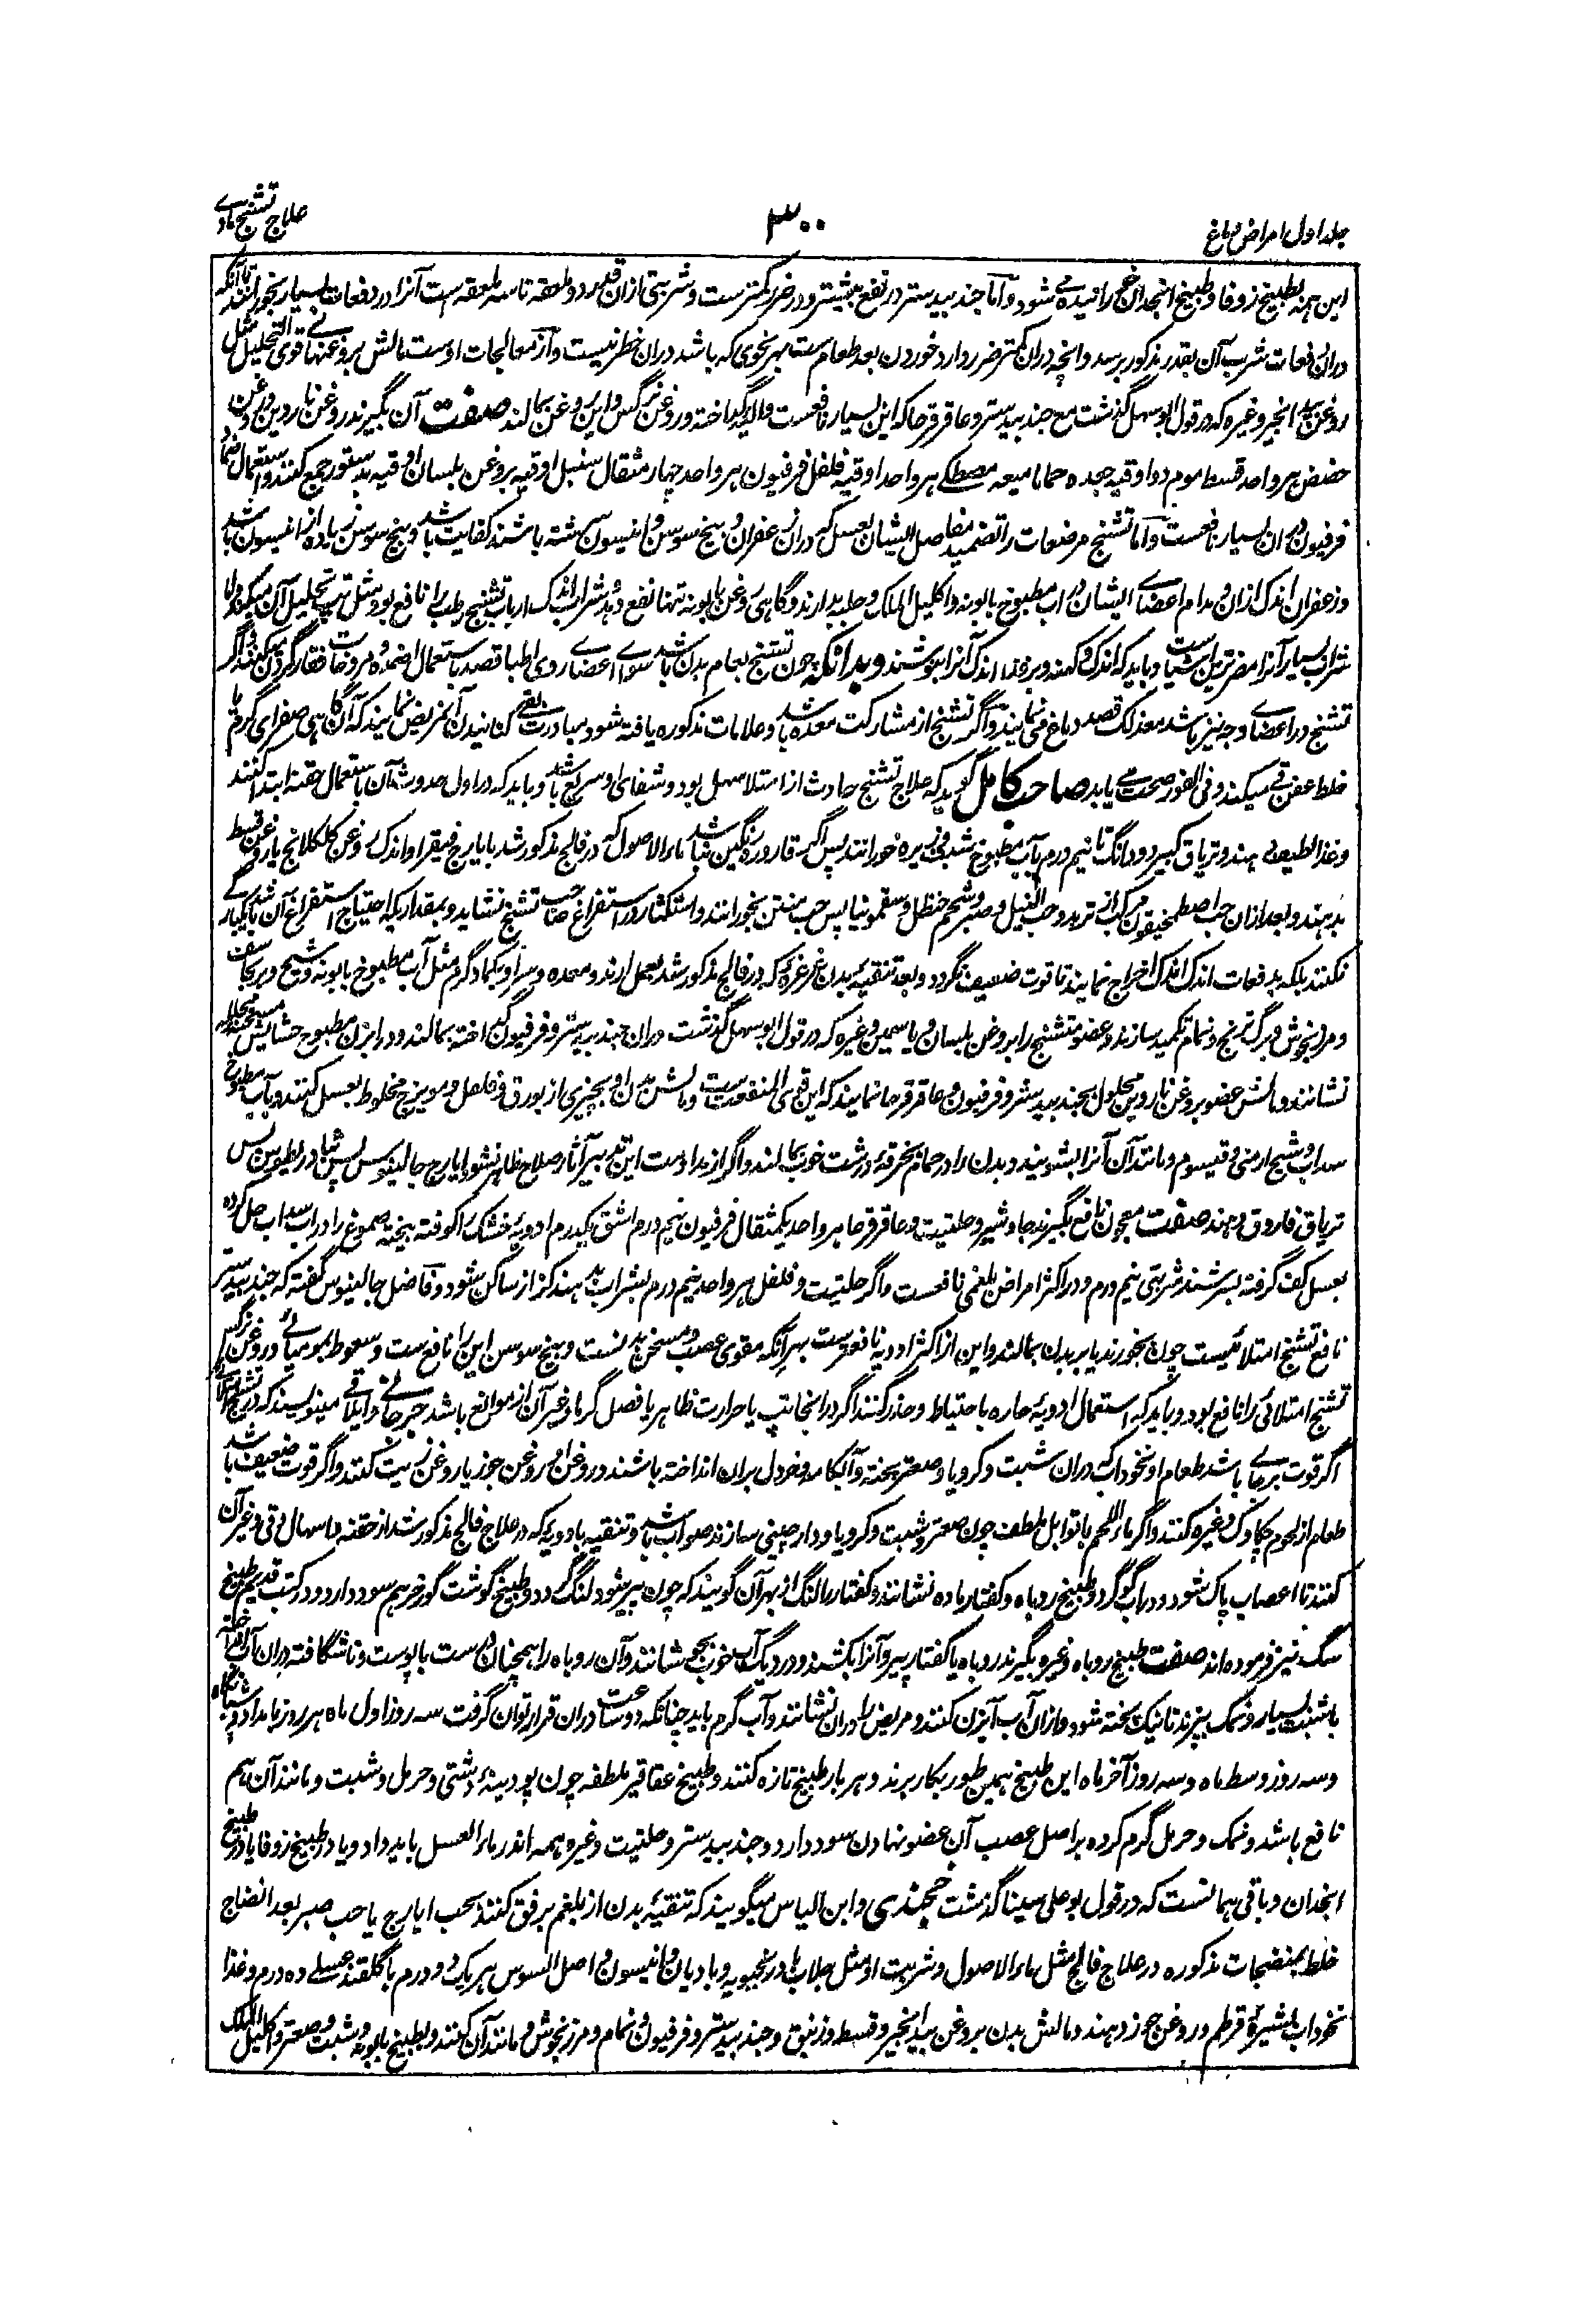 جلد اول امراض دماغ
۳۰۰
علاج تشنج مادی
این همه بطبیخ زوفا و طبیخ انجدان رائیده می شود و اما جندبیدستر در نفع بیشتر و در ضرر کمترست و شربتی ازان قدر دو ملعقه تا سه ملعقه است آنرا در دفعات بسیار بخورانند تا آنکه
دران دفعات شرب آن بقدر مذکور برسد و آنچه دران کمتر ضرر دارد خوردن بعد طعام ست بهر نحوی که باشد دران خطر نیست و از معالجات اوست مالش بروغنهای قوی التحلیل مثل
روغن بید انجیر وغیره که در قول ابوسهل گذشت مع جندبیدستر و عاقرقرحا که این بسیار نافعست والیه گداخته و روغن نرگس و این روغن بمالند صفت آن بگیرند روغن ناردین و روغن
حضض هر واحد قسط موم دو اوقیه جعده حماما میعه مصطکی هر واحد اوقیه فلفل فرفیون هر واحد چهار مثقال سنبل اوقیه روغن بلسان اوقیه بدستور جمع کنند و استعمال ضماد
فرفیون دران بسیار نافعست و اما تشنج مرضعات را تضمید مفاصل ایشان بعسل که دران زعفران و بیخ سوسن و انیسون سرشته باشند کفایت باشد و بیخ سوسن زیاده از انیسون باشد
و زعفران اندک ازان و مدام اعضای ایشان در آب مطبوخ بابونه و اکلیل الملک و حلبه بدارند و گاهی روغن بابونه تنها نفع دهد شراب اندک ارباب تشنج رطب را نافع بود مثل تپ تحلیل آن میکند و اما
شراب بسیار آنرا مضرترین اشیاست و باید که اندک و کهنه و بر غذا اندک آنرا بنوشند و بدانکه چون تشنج بعام بدن باشد سوای اعضای روی اطبا قصد باستعمال اضمده و مروخات فقار گردن میکنند و اگر
تشنج در اعضای وجه نیز باشد معذلک قصد دماغ می نمایند و اگر تشنج از مشارکت معده باشد و علامات مذکوره یافته شود مبادرت بقی کنانیدن آن مریض نمایند که آن گاهی صفرای گرم یا
خلط عفن قی میکند و فی الفور صحت می یابد صاحب کامل گوید که علاج تشنج حادث از امتلا سهل بود و شفای او سریع باشد و باید که در اول حدوث آن باستعمال حقنه ابتدا کنند
و غذا لطیف دهند و تریاق کبیر دو دانگ تا نیم درم بآب مطبوخ شبت و زیره خورانند پس اگر قاروره رنگین نباشد ماء الاصول که در فالج مذکور شد با یارج فیقرا و اندک روغن کلکلانج یا روغن قسط
بدهند و بعد ازان حب اصطمخیقون مرکب از تربد و حب النیل و صبر و شحم حنظل و سقمونیا پس حب منتن بخورانند و استکثار در استفراغ صاحب تشنج نشاید و بمقداریکه احتیاج استفراغ آن باشد یکبارگی
نکنند بلکه بدفعات اندک اندک اخراج نمایند تا قوت ضعیف نگردد و بعد تنقیه بدن غرغره که در فالج مذکور شد بعمل آرند و معده و سر او بکماد گرم مثل آب مطبوخ بابونه و شیح و برنجاسف
و مرزنجوش و برگ ترنج و نمام تکمید سازند و عضو متشنج را بروغن بلسان و یاسمین وغیره که در قول ابوسهل گذشت دران جندبیدستر و فرفیون گداخته بمالند و در ابزن مطبوخ حشایش مسخنه محلله
نشانند و مالش عضو بروغن ناردین محلول بجندبیدستر و فرفیون و عاقرقرحا نمایند که این قوی المنفعت ست و مالش بدن او بچیزی از بورق و فلفل و مویزج مخلوط بعسل کنند و بآب مطبوخ
سداب و شیح ارمنی و قیسوم و مانند آن آنرا بشویند و بدن را در حمام بخرقه درشت خوب بمالند و اگر از مداومت این تدبیر آثار صلاح ظاهر نشود ایارج جالینوس پس ثیادریطوس پس
تریاق فاروق دهند صفت معجون نافع بگیرند جاوشیر و حلتیت و عاقرقرحا هر واحد یکمثقال فرفیون نیم درم اشق یکدرم ادویه خشک را کوفته بیخته صموغ را در آب سداب حل کرده
بعسل کف گرفته بسرشند شربتی نیم درم و در اکثر امراض بلغمی نافعست و اگر حلتیت و فلفل هر واحد نیم درم بشراب بدهند کزاز ساکن شود و فاضل جالینوس گفته که جندبیدستر
نافع تشنج امتلائیست چون بخورند یا بر بدن بمالند و این از اکثر ادویه نافعترست بهر آنکه مقوی عصب و مسخن بدنست و بیخ سوسن این را نافع ست و سعوط بمومیائی و روغن نرگس
تشنج امتلائی را نافع بود و باید که استعمال ادویه حاره باحتیاط و حذر کنند اگر در اینجا تپ یا حرارت ظاهر یا فصل گرما و غیر آن از موانع باشد جرجانی و ایلاقی مینویسند که در تشنج امتلائی
اگر قوت برجای باشد طعام او نخوداب که دران شبت و کرویا و صعتر پخته و آبکامه و خردل بران انداخته باشند و روغن او روغن جوز یا روغن زیت کنند و اگر قوت ضعیف باشد
طعام از لحوم چکاوک وغیره کنند و اگر ماء اللحم با توابل ملطف چون صعتر و شبت و کرویا و دارچینی سازند صواب باشد و تنقیه بادویه که در علاج فالج مذکور شد از حقنه و اسهال و قی و غیر آن
کنند تا اعصاب پاک شود و در آب گوگرد و طبیخ روباه و کفتار ماده نشانند و کفتار را لنگ از بهر آن گویند که چون پیر شود لنگ گردد و طبیخ گوشت گورخر هم سود دارد و در کتب قدیم طبیخ
سگ نیز فرموده اند صفت طبیخ روباه وغیره بگیرند روباه یا کفتار پیر و آنرا بکشند و در دیگ آب خوب بجوشانند و آن روباه را همچنان درست با پوست و ناشگافته دران آب انداخته
باشبت بسیار و نمک بپزند تا نیک پخته شود و ازان آب آبزن کنند و مریض را دران نشانند و آب گرم باید چنانکه دو ساعت دران قرار توان گرفت سه روز اول ماه هر روز بامداد و شبانگاه
و سه روز وسط ماه و سه روز آخر ماه این طبیخ بهمین طور بکار برند و هر بار طبیخ تازه کنند و طبیخ عقاقیر ملطفه چون پودینه دشتی و حرمل و شبت و مانند آن هم
نافع باشد و نمک و حرمل گرم کرده بر اصل عصب آن عضو نهادن سود دارد و جندبیدستر و حلتیت وغیره همه اندر ماء العسل باید داد و یا در طبیخ زوفا یا در طبیخ
انجدان و باقی همانست که در قول بوعلی سینا گذشت خجندی و ابن الیاس میگویند که تنقیه بدن از بلغم برفق کنند بحب ایارج یا حب صبر بعد انضاج
خلط بمنضجات مذکوره در علاج فالج مثل ماء الاصول و شربت او مثل جلاب بادرنجبویه و بادیان و انیسون و اصل السوس هر یک دو درم با گلقند عسلی ده درم و غذا
نخوداب بشیره قرطم و روغن جوز دهند و مالش بدن بروغن بید انجیر و قسط و زنبق و جندبیدستر و فرفیون و نمام و مرزنجوش و مانند آن کنند و بطبیخ بابونه و شبت و صعتر و اکلیل الملک